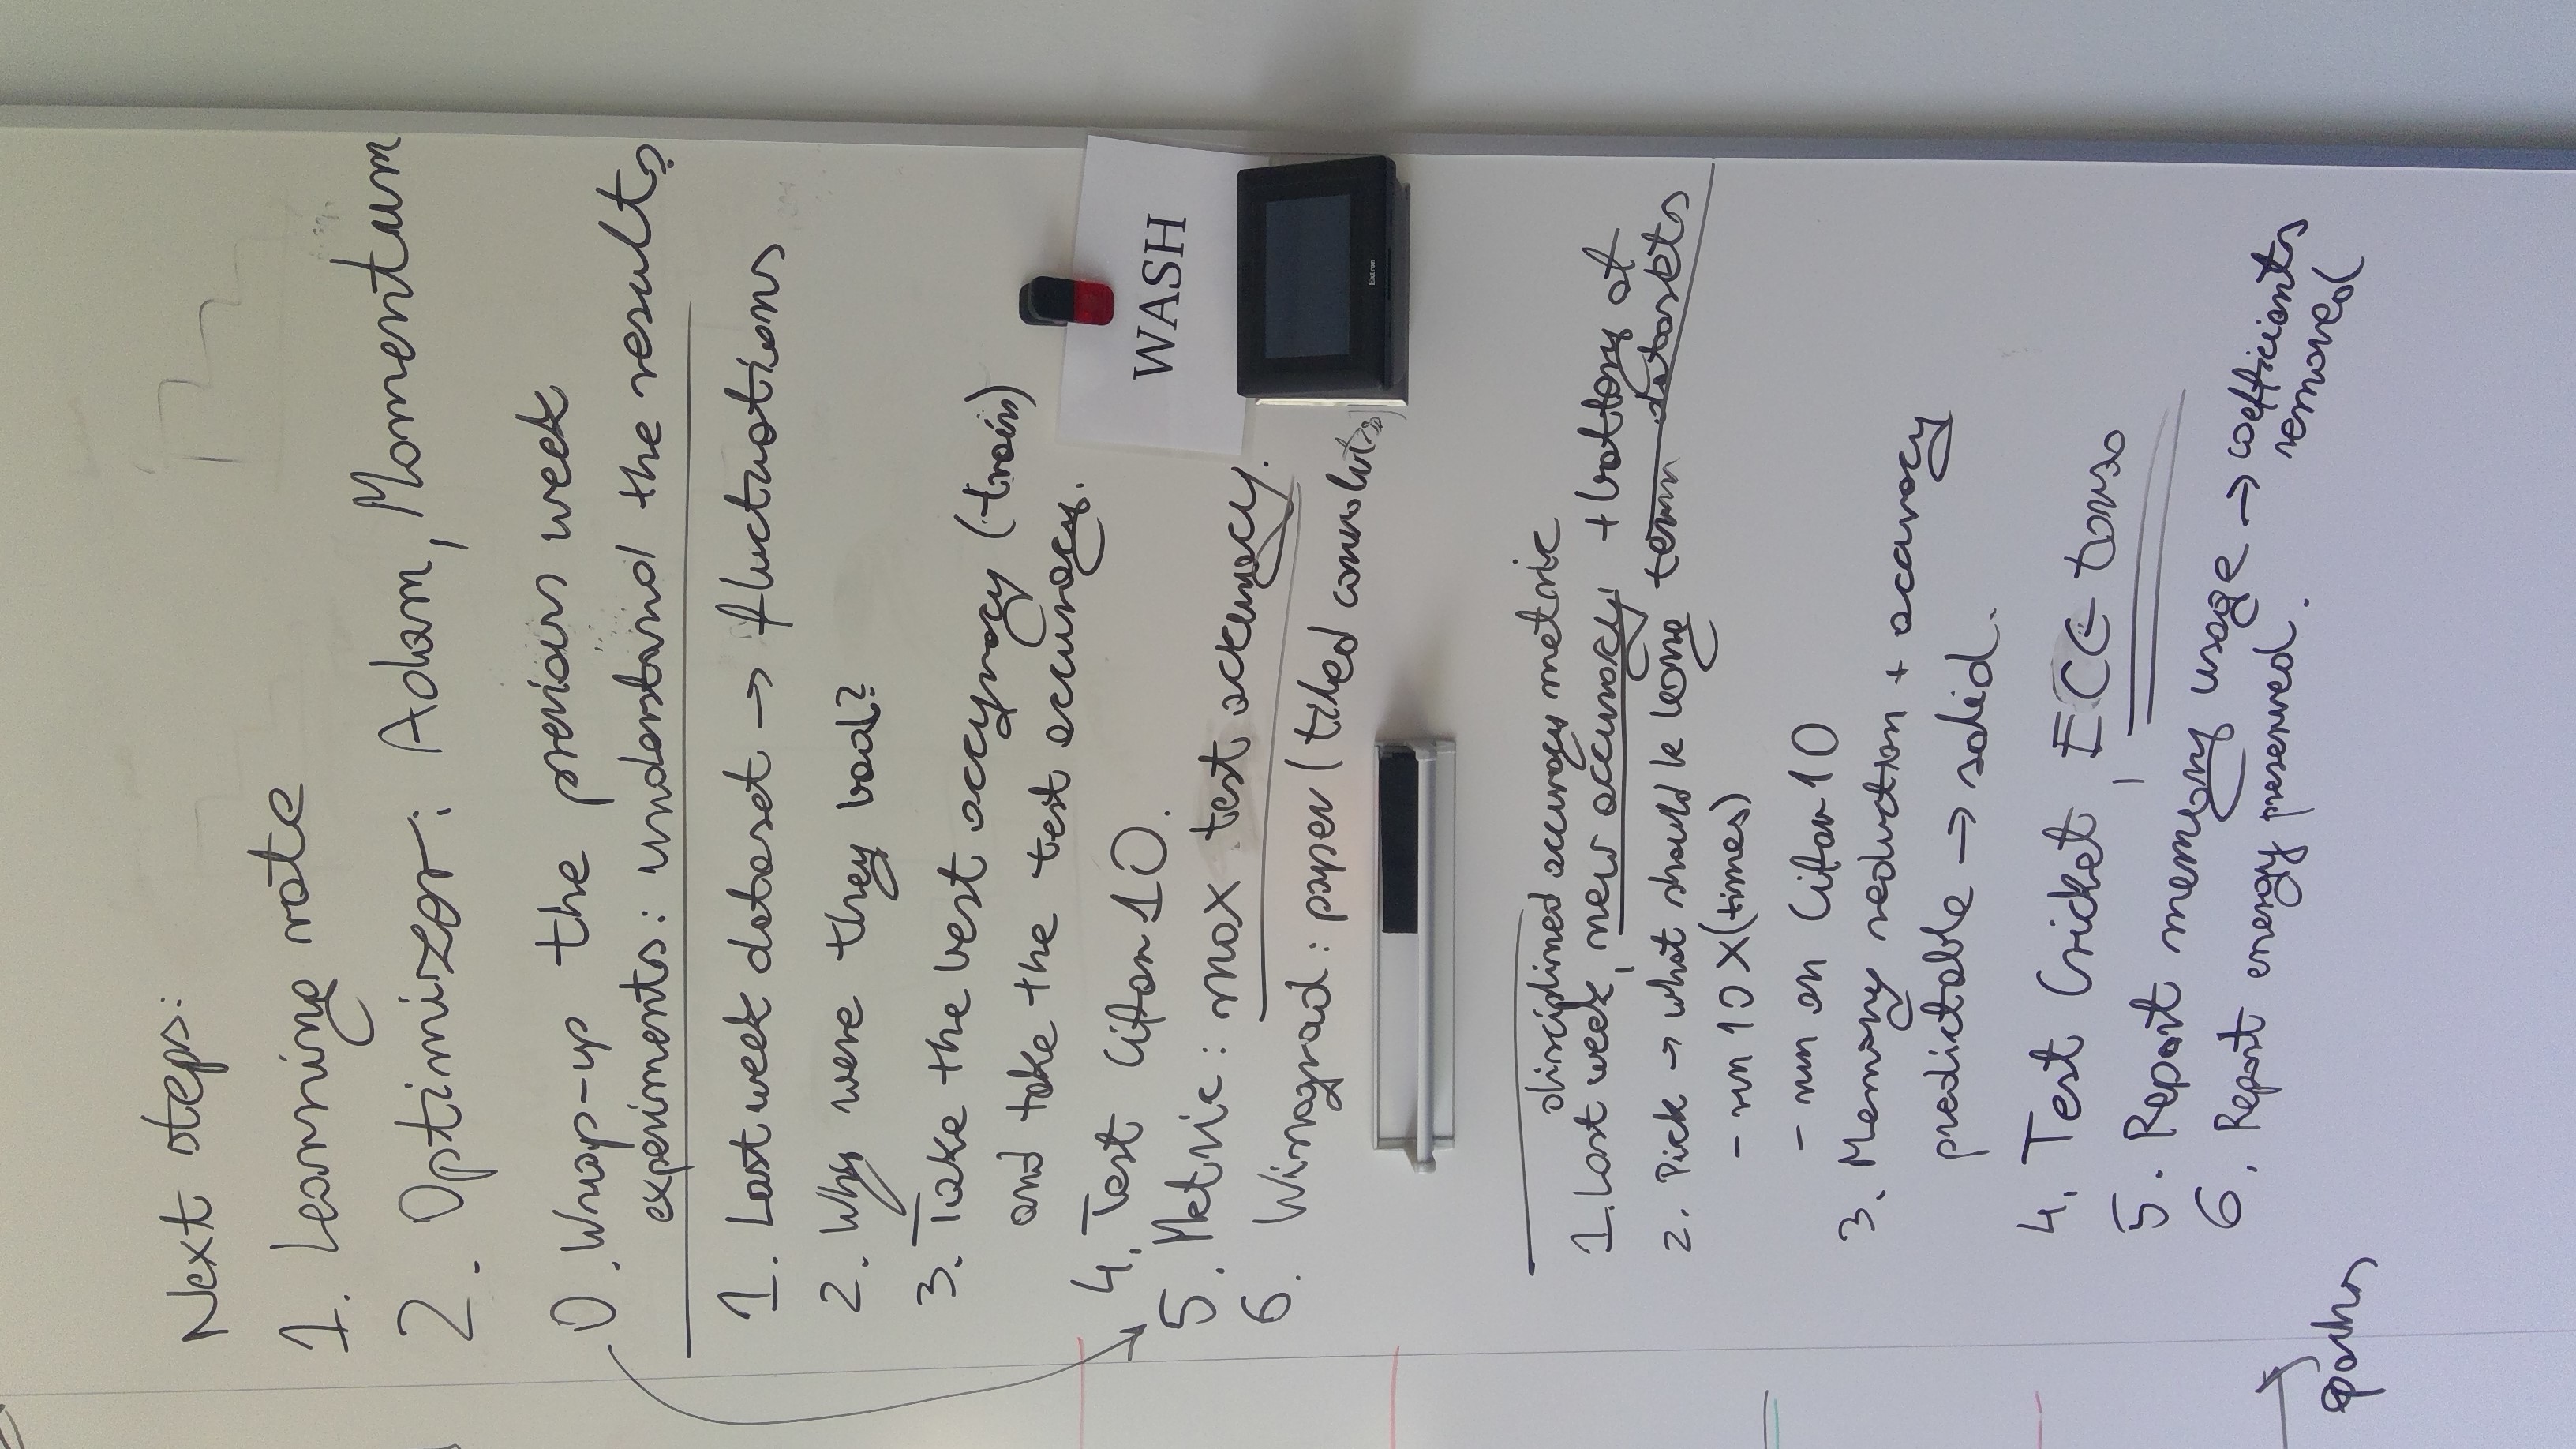 Next steps:
1. Learning rate
2. Optimizer: Adam, Momentum
0. Wrap-up the previous week
experiments: understand the results
1. Last week dataset → fluctuations
2. Why were they bad?
3. Take the best accyracy (train)
and take the test accuracy.
4. Test Cifar10.
5. Metric: max test accuracy.
6. Winograd: paper (tiled convolution)
WASH
Extron
disciplined accuracy metric
1. Last week, new accuracy + bottom at
2. Pick → what should be long term datasets
- run 10 X (times)
- run on Cifar10
3. Memory reduction + accuracy
predictable → solid.
4. Test Cricket, ECG torso
5. Report memory usage → coefficients
removed
6. Report energy preserved.
epochs